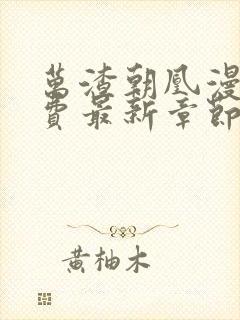 萬渣朝凰漫
費最新章節
黃柚木